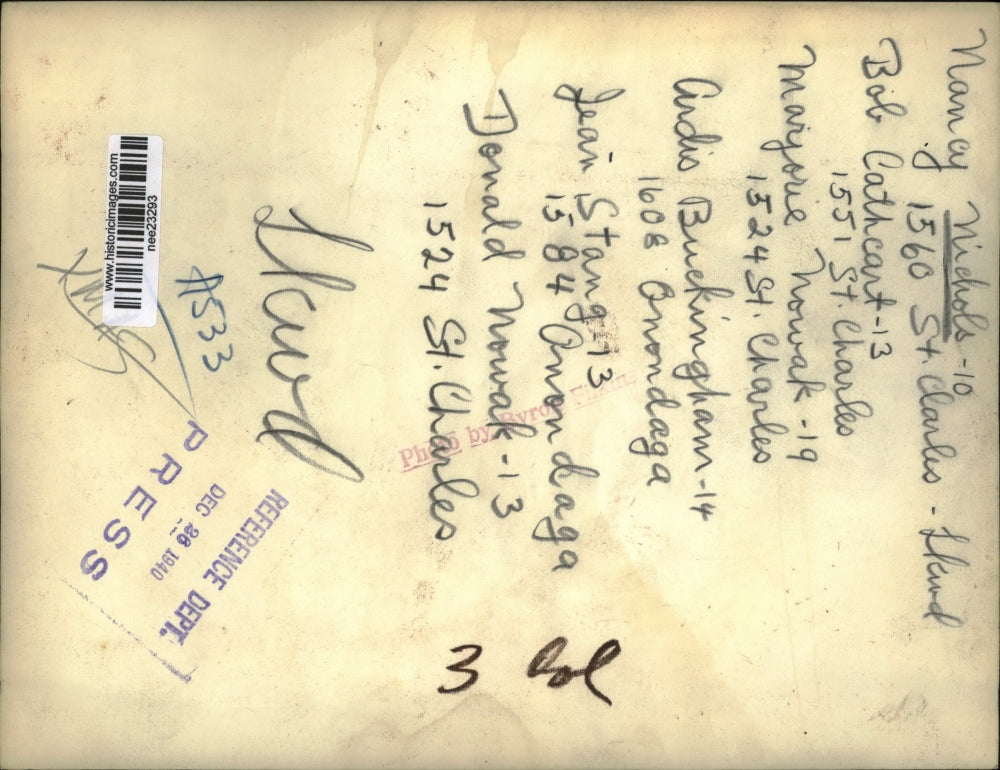 Nancy Nichols -10
1560 St Charles - Lkwd
Bob Cathcart -13
1551 St. Charles
Marjorie Nowak -19
1524 St. Charles
Ardis Buckingham -14
1608 Onondaga
Jean Stang -13
1584 Onondaga
Donald Nowak -13
1524 St. Charles
Lkwd
Photo by Byron
3 Col
A533
Xmas
www.historicimages.com
nee23293
REFERENCE DEPT.
DEC 26 1940
PRESS